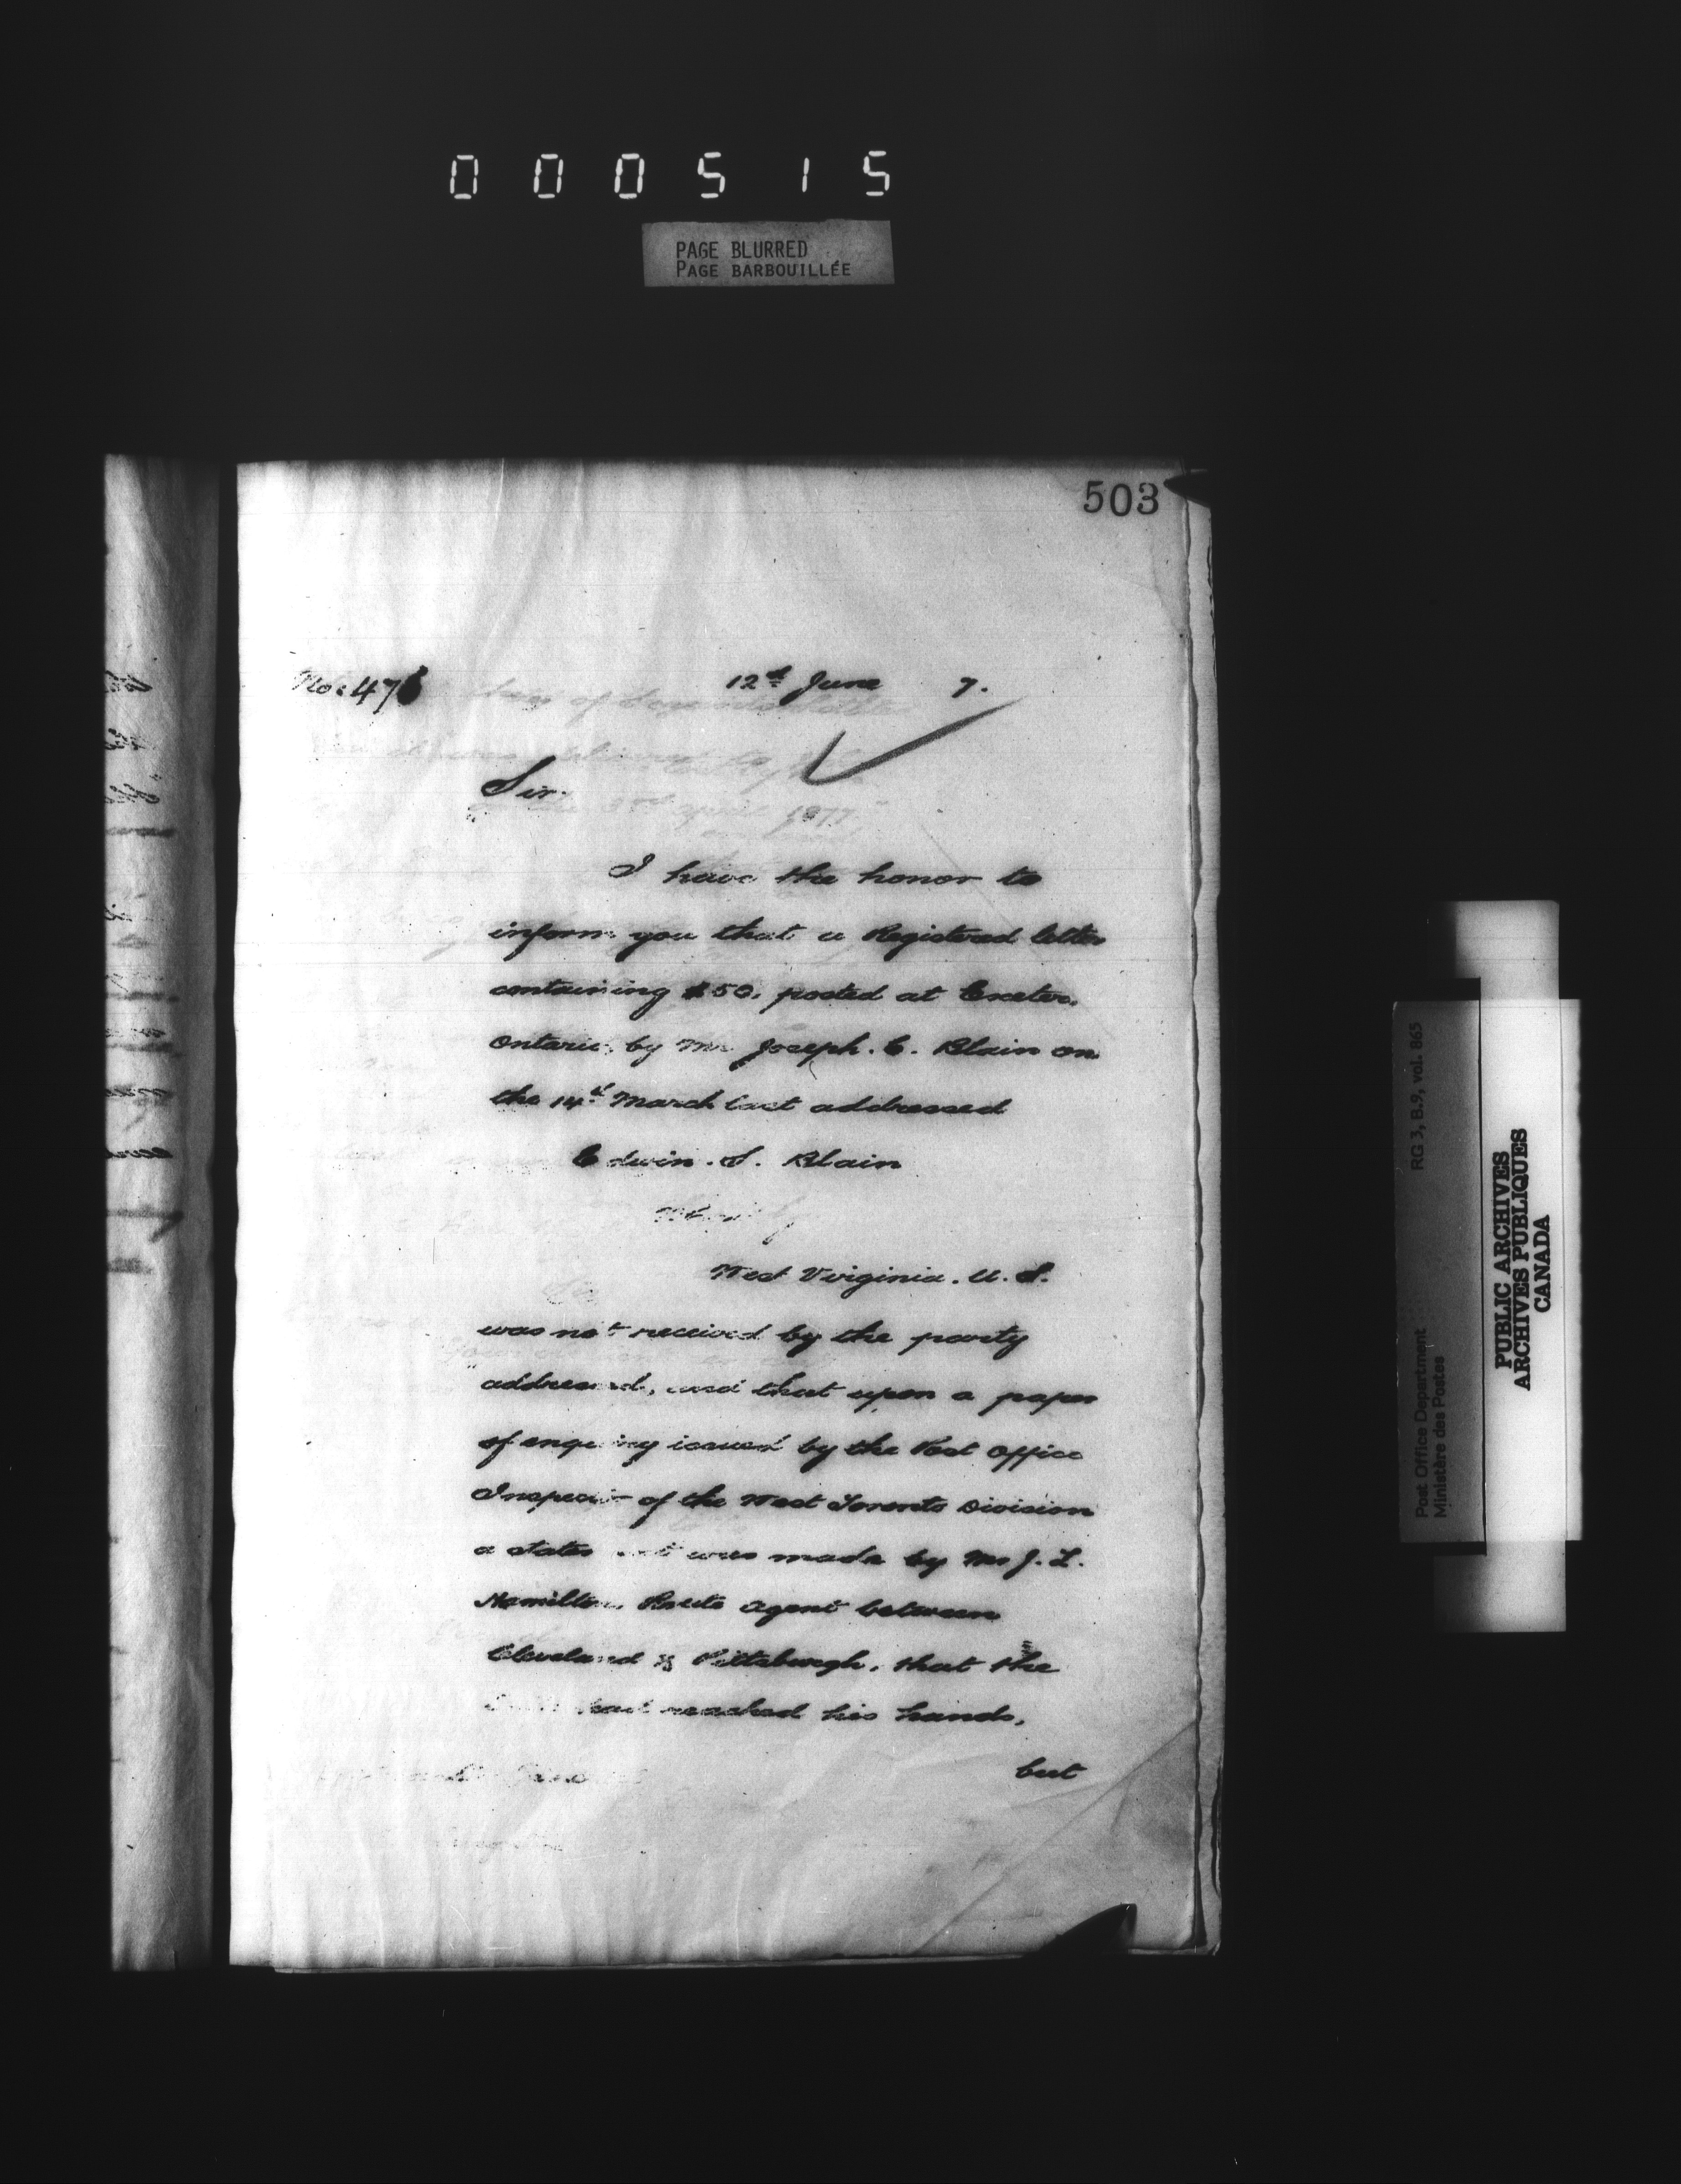 000515
PAGE BLURRED
PAGE BARBOUILLÉE
503
No. 476
12th June 7.
Sir.
I have the honor to
inform you that a Registered letter
containing $50, posted at Exeter,
Ontario, by Mr Joseph. C. Blain on
the 14th March last addressed
Edwin. S. Blain
West Virginia. U. S.
was not received by the party
addressed, and that upon a paper
of enquiry issued by the Post Office
Inspector of the West Toronto Division
a statement was made by Mr J. L.
Hamilton, Route Agent between
Cleveland & Pittsburgh, that the
had reached his hands,
but
RG 3, B.9, vol. 865
Post Office Department
Ministère des Postes
PUBLIC ARCHIVES
ARCHIVES PUBLIQUES
CANADA